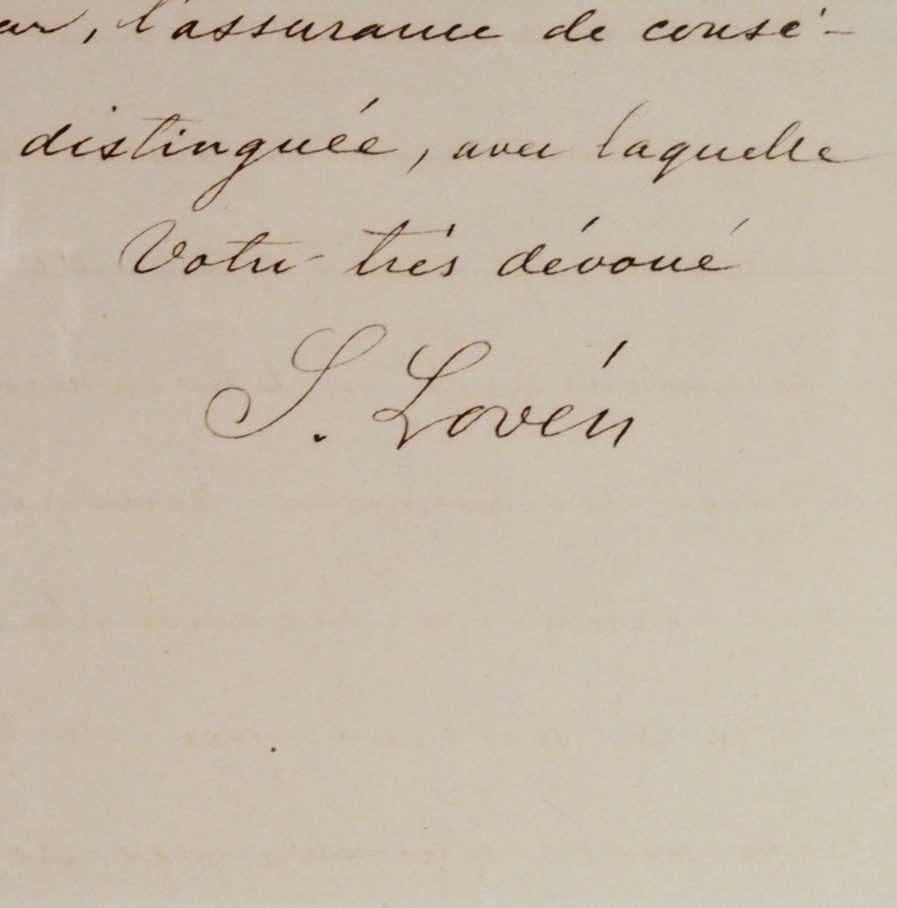 , l'assurance de consé-
distinguée, avec laquelle
Votre très dévoué
S. Lovén